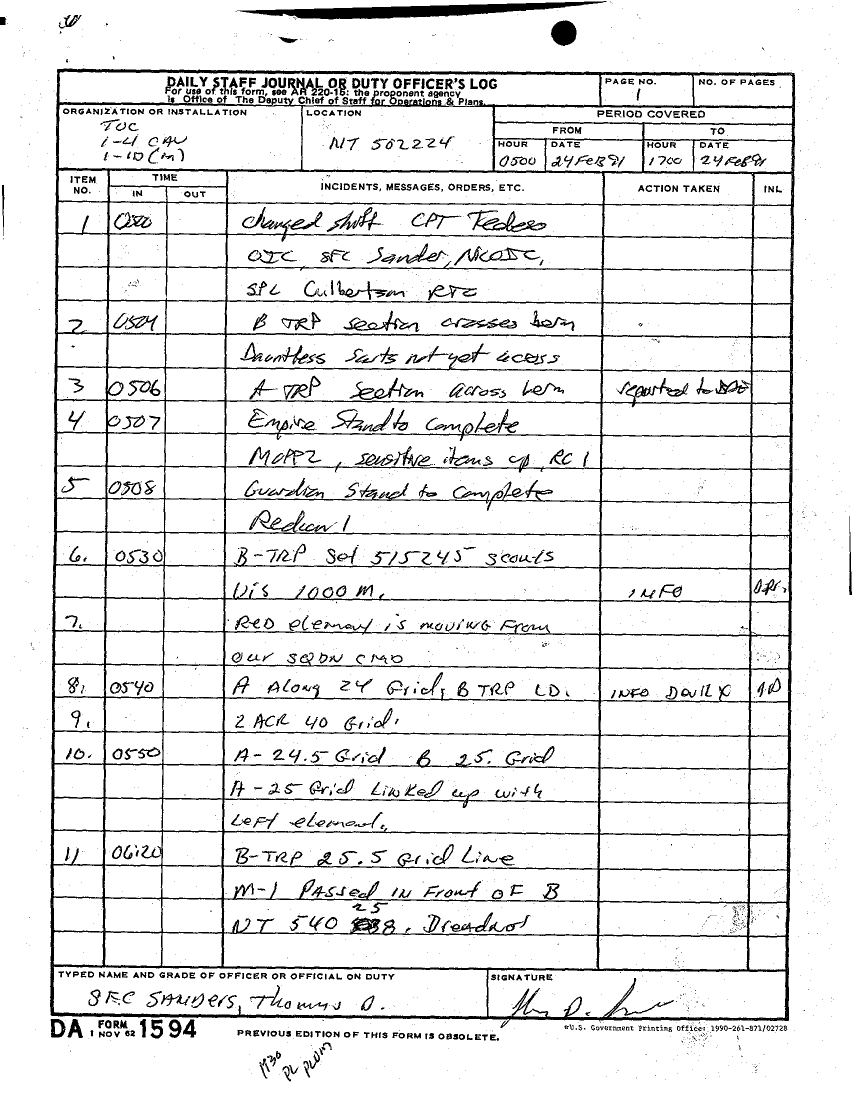 DAILY STAFF JOURNAL OR DUTY OFFICER'S LOG
For use of this form, see AR 220-15: the proponent agency
is Office of The Deputy Chief of Staff for Operations & Plans.
PAGE NO.
1
NO. OF PAGES
ORGANIZATION OR INSTALLATION
TOC
1-4 CAV
1-1D(M)
LOCATION
NT 502224
PERIOD COVERED
FROM TO
HOUR DATE HOUR DATE
0500 24 FEB 91 1700 24 FEB 91
ITEM NO. TIME INCIDENTS, MESSAGES, ORDERS, ETC. ACTION TAKEN INL
IN OUT
1 changed shift CPT
OIC, SFC Sander, NCOIC,
SPC Culbertson RTO
2 0504 B TRP section crosses berm
Dauntless Scts not yet across
3 0506 A TRP Section across berm reported to
4 0507 Empire Stand to Complete
MOPP2, sensitive items up, RC 1
5 0508 Guardian Stand to Complete
Redcon 1
6. 0530 B-TRP Set 515245 scouts
Vis 1000 M. INFO
7. Red element is moving From
our SQDN CMO
8. 0540 A Along 24 Grid, B TRP LD. INFO
9. 2 ACR 40 Grid.
10. 0550 A-24.5 Grid B 25. Grid
A-25 Grid Linked up with
Left element.
11 0620 B-TRP 25.5 Grid Line
M-1 PASSed IN Front OF B
25
NT 540 8.
TYPED NAME AND GRADE OF OFFICER OR OFFICIAL ON DUTY
SFC SANDERS, Thomas D.
SIGNATURE
DA FORM 1594
1 NOV 62
PREVIOUS EDITION OF THIS FORM IS OBSOLETE.
☆U.S. Government Printing Office: 1990-261-871/02728
PL PLUM